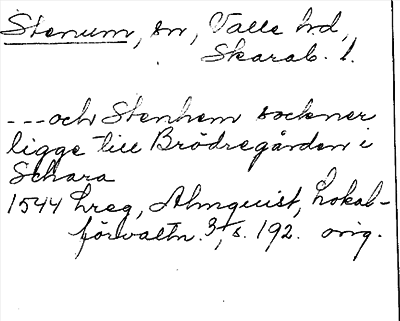 Stenum, sn, Valle hd,
Skarab. l.
---och Stenhem sockner
ligge till Brödregården i
Schara
1544 hreg, Almquist, Lokal-
förvaltn. 3, s. 192. orig.